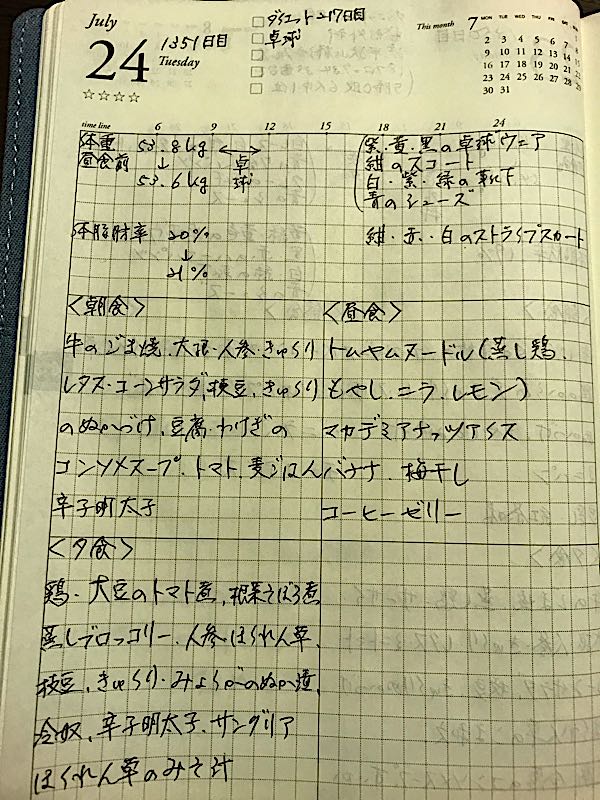 July
24
1351日目
Tuesday
☆☆☆☆
□ ダイエット 17日目
□ 卓球
This month 7
MON TUE WED THU FRI SAT
1
2 3 4 5 6 7 8
9 10 11 12 13 14 15
16 17 18 19 20 21 22
23 24 25 26 27 28 29
30 31
time line 6 9 12 15 18 21 24
体重 53.8kg ↔
昼食前 ↓ 卓球
53.6kg
体脂肪率 20%
↓
21%
紫・黄・黒の卓球ウェア
紺のスコート
白・紫・緑の靴下
青のシューズ
紺・赤・白のストライプスカート
<朝食>
牛のごま焼、大根・人参・きゅうり
レタス・コーンサラダ、枝豆、きゅうり
のぬかづけ、豆腐・わけぎの
コンソメスープ、トマト、麦ごはん
辛子明太子
<昼食>
トムヤムヌードル(蒸し鶏、
もやし、ニラ、レモン)
マカデミアナッツアイス
バナナ、梅干し
コーヒーゼリー
<夕食>
鶏・大豆のトマト煮、根菜そぼろ煮
蒸しブロッコリー、人参、ほうれん草、
枝豆、きゅうり・みょうがのぬか漬、
冷奴、辛子明太子、サングリア
ほうれん草のみそ汁